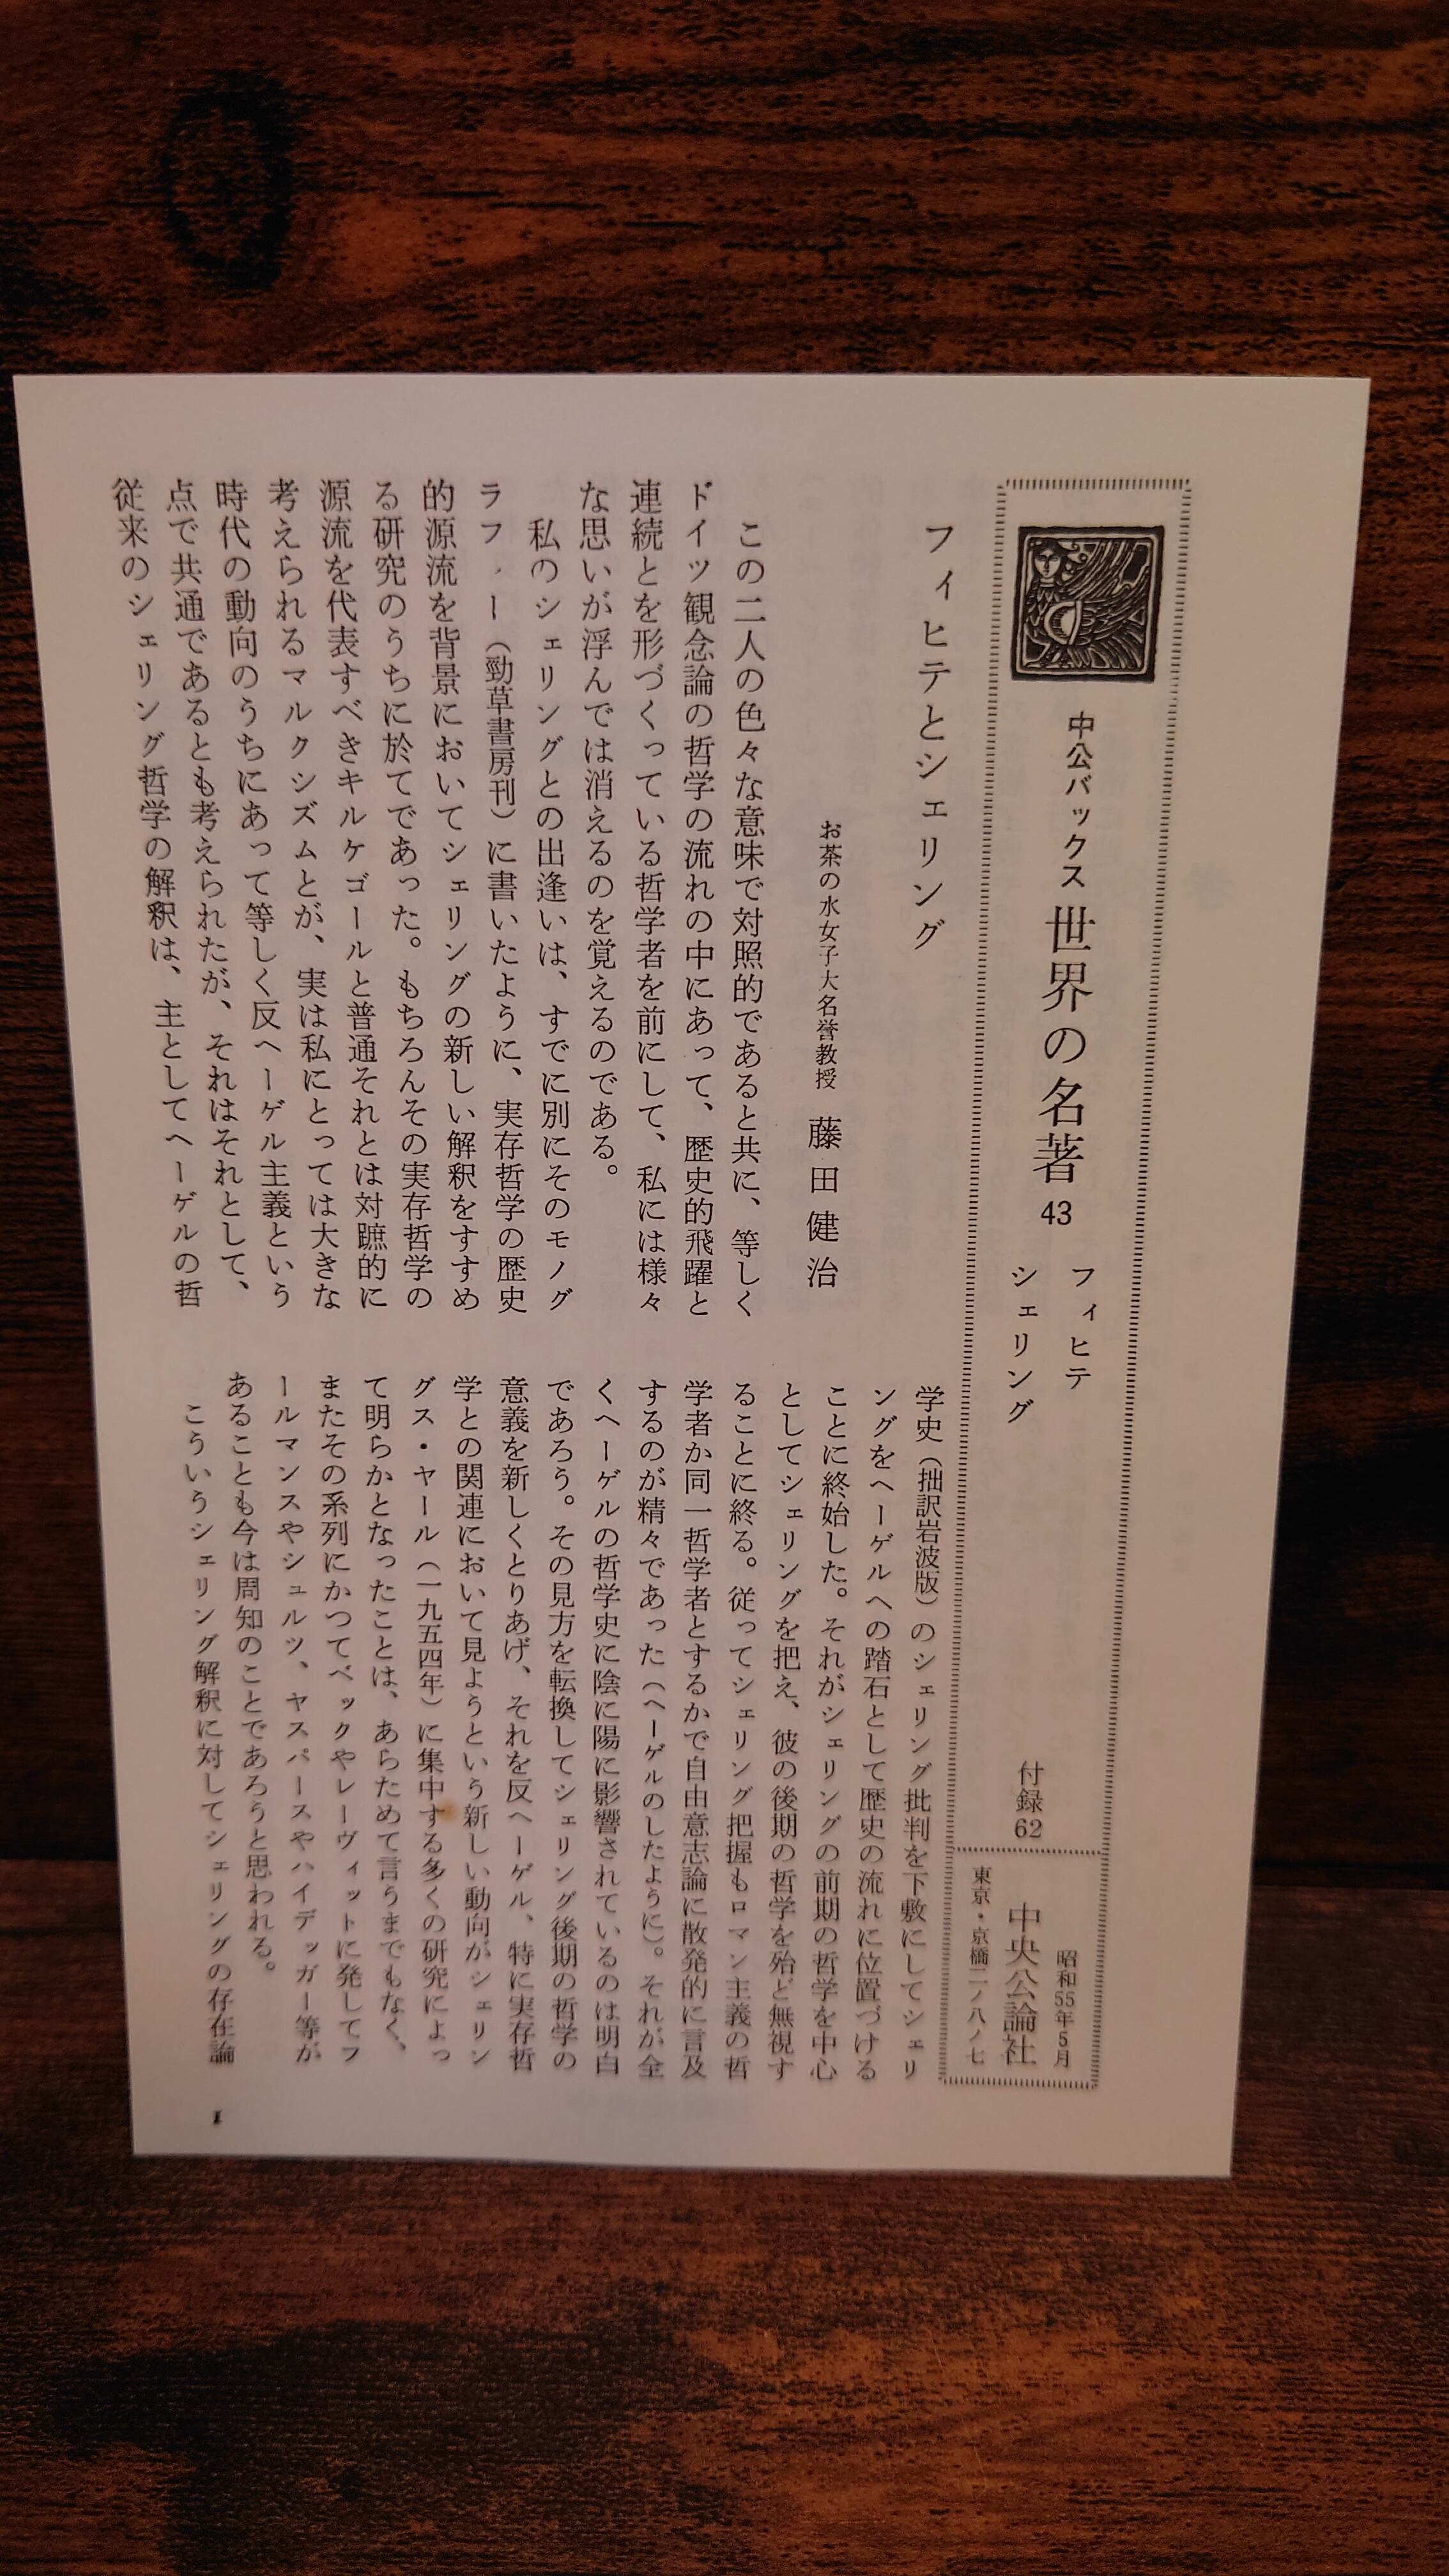 中公バックス 世界の名著 43 フィヒテ
シェリング
付録 62
昭和55年5月
中央公論社
東京・京橋二ノ八ノ七
フィヒテとシェリング
お茶の水女子大名誉教授 藤田健治
この二人の色々な意味で対照的であると共に、等しく
ドイツ観念論の哲学の流れの中にあって、歴史的飛躍と
連続とを形づくっている哲学者を前にして、私には様々
な思いが浮んでは消えるのを覚えるのである。
私のシェリングとの出逢いは、すでに別にそのモノグ
ラフィー（勁草書房刊）に書いたように、実存哲学の歴史
的源流を背景においてシェリングの新しい解釈をすすめ
る研究のうちに於てであった。もちろんその実存哲学の
源流を代表すべきキルケゴールと普通それとは対蹠的に
考えられるマルクシズムとが、実は私にとっては大きな
時代の動向のうちにあって等しく反ヘーゲル主義という
点で共通であるとも考えられたが、それはそれとして、
従来のシェリング哲学の解釈は、主としてヘーゲルの哲
学史（拙訳岩波版）のシェリング批判を下敷にしてシェリ
ングをヘーゲルへの踏石として歴史の流れに位置づける
ことに終始した。それがシェリングの前期の哲学を中心
としてシェリングを把え、彼の後期の哲学を殆ど無視す
ることに終る。従ってシェリング把握もロマン主義の哲
学者か同一哲学者とするかで自由意志論に散発的に言及
するのが精々であった（ヘーゲルのしたように）。それが全
くヘーゲルの哲学史に陰に陽に影響されているのは明白
であろう。その見方を転換してシェリング後期の哲学の
意義を新しくとりあげ、それを反ヘーゲル、特に実存哲
学との関連において見ようという新しい動向がシェリン
グス・ヤール（一九五四年）に集中する多くの研究によっ
て明らかとなったことは、あらためて言うまでもなく、
またその系列にかつてベックやレーヴィットに発してフ
ールマンスやシュルツ、ヤスパースやハイデッガー等が
あることも今は周知のことであろうと思われる。
こういうシェリング解釈に対してシェリングの存在論
1